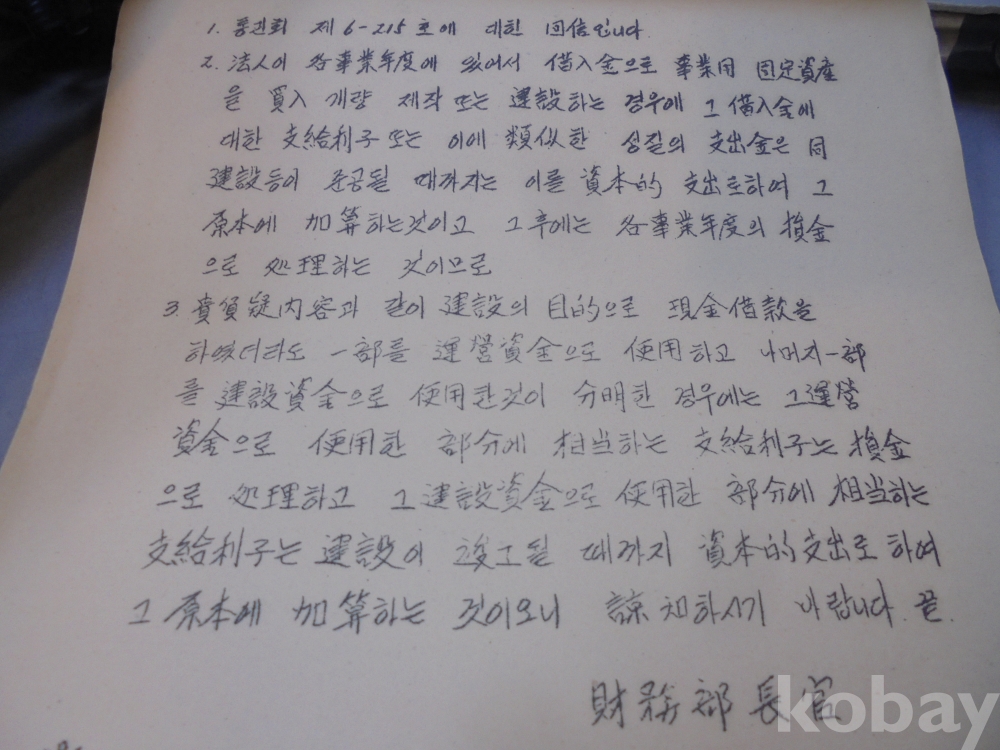 1. 통진회 제6-215호에 대한 回信입니다.
2. 法人이 各事業年度에 있어서 借入金으로 事業用 固定資産
을 買入 개량 제작 또는 建設하는 경우에 그 借入金에
대한 支給利子 또는 이에 類似한 성질의 支出金은 同
建設등이 준공될 때까지는 이를 資本的 支出로하여 그
原本에 加算하는것이고 그후에는 各事業年度의 損金
으로 処理하는 것이므로
3. 貴質疑内容과 같이 建設의 目的으로 現金借款을
하였더라도 一部를 運營資金으로 使用하고 나머지 一部
를 建設資金으로 使用한것이 分明한 경우에는 그 運營
資金으로 使用한 部分에 相当하는 支給利子는 損金
으로 処理하고 그 建設資金으로 使用한 部分에 相当하는
支給利子는 建設이 竣工될 때까지 資本的支出로 하여
그 原本에 加算하는 것이오니 諒知하시기 바랍니다. 끝.
財務部長官
kobay